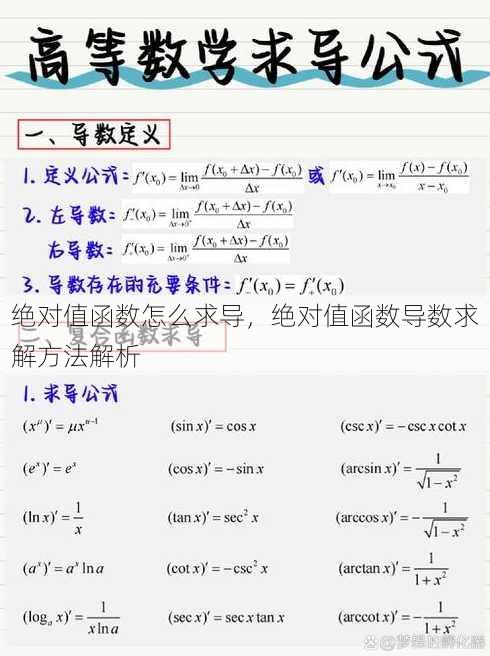 高等数学求导公式
一、导数定义
1. 定义公式: f'(x₀) = lim_{Δx→0} \frac{f(x₀ + Δx) − f(x₀)}{Δx} 或 f'(x₀) = lim_{x→x₀} \frac{f(x) − f(x₀)}{x − x₀}
2. 左导数: f'₋(x₀) = lim_{Δx→0⁻} \frac{f(x₀ + Δx) − f(x₀)}{Δx}
右导数: f'₊(x₀) = lim_{Δx→0⁺} \frac{f(x₀ + Δx) − f(x₀)}{Δx}
3. 导数存在的充要条件: f'₋(x₀) = f'₊(x₀)
绝对值函数怎么求导，绝对值函数导数求
二、复合函数求导
解方法解析
1. 求导公式
(x^μ)' = μx^{n−1} (sin x)' = cos x (csc x)' = −csc x cot x
(eˣ)' = eˣ (cos x)' = −sin x (arcsin x)' = \frac{1}{\sqrt{1−x²}}
(ln x)' = \frac{1}{x} (tan x)' = sec² x (arccos x)' = −\frac{1}{\sqrt{1−x²}}
(aˣ)' = aˣ ln a (cot x)' = −csc² x (arctan x)' = \frac{1}{1+x²}
(logₐ x)' = \frac{1}{x ln a} (sec x)' = sec x tan x (arccot x)' = −\frac{1}{1+x²}
@梦想的孵化器